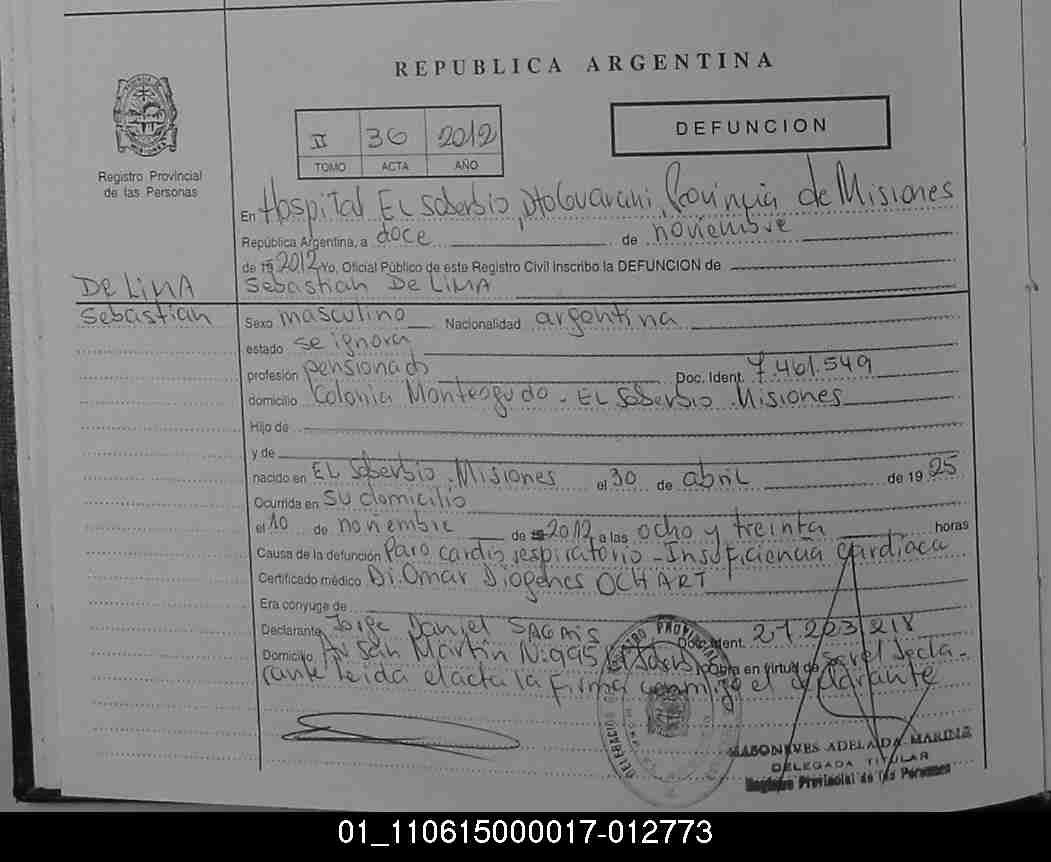 REPUBLICA ARGENTINA
II 36 2012
TOMO ACTA AÑO
DEFUNCION
Registro Provincial
de las Personas
En Hospital EL Soberbio, Dto Guarani, Provincia de Misiones
República Argentina, a doce de noviembre
de 19 2012 Yo, Oficial Público de este Registro Civil Inscribo la DEFUNCION de
DE LIMA
Sebastian De LIMA
Sebastian
Sexo masculino Nacionalidad argentina
estado se ignora
profesión pensionado Doc. Ident. 7.461.549
domicilio Colonia Monteagudo - EL Soberbio Misiones
Hijo de
y de
nacido en EL Soberbio, Misiones el 30 de abril de 19 25
Ocurrida en Su domicilio
el 10 de noviembre de 2012 a las ocho y treinta horas
Causa de la defunción Paro cardio respiratorio - Insuficiencia cardiaca
Certificado médico Dr. Omar Diogenes OCHART
Era cónyuge de
Declarante Jorge Daniel
Doc. Ident. 21 223 218
Domicilio Av San Martin N: 995 Obra en virtud de ser el decla-
rante leida el acta la firma conmigo el declarante
ADELAIDA MARINA
DELEGADA TITULAR
Registro Provincial de las Personas
01_110615000017-012773